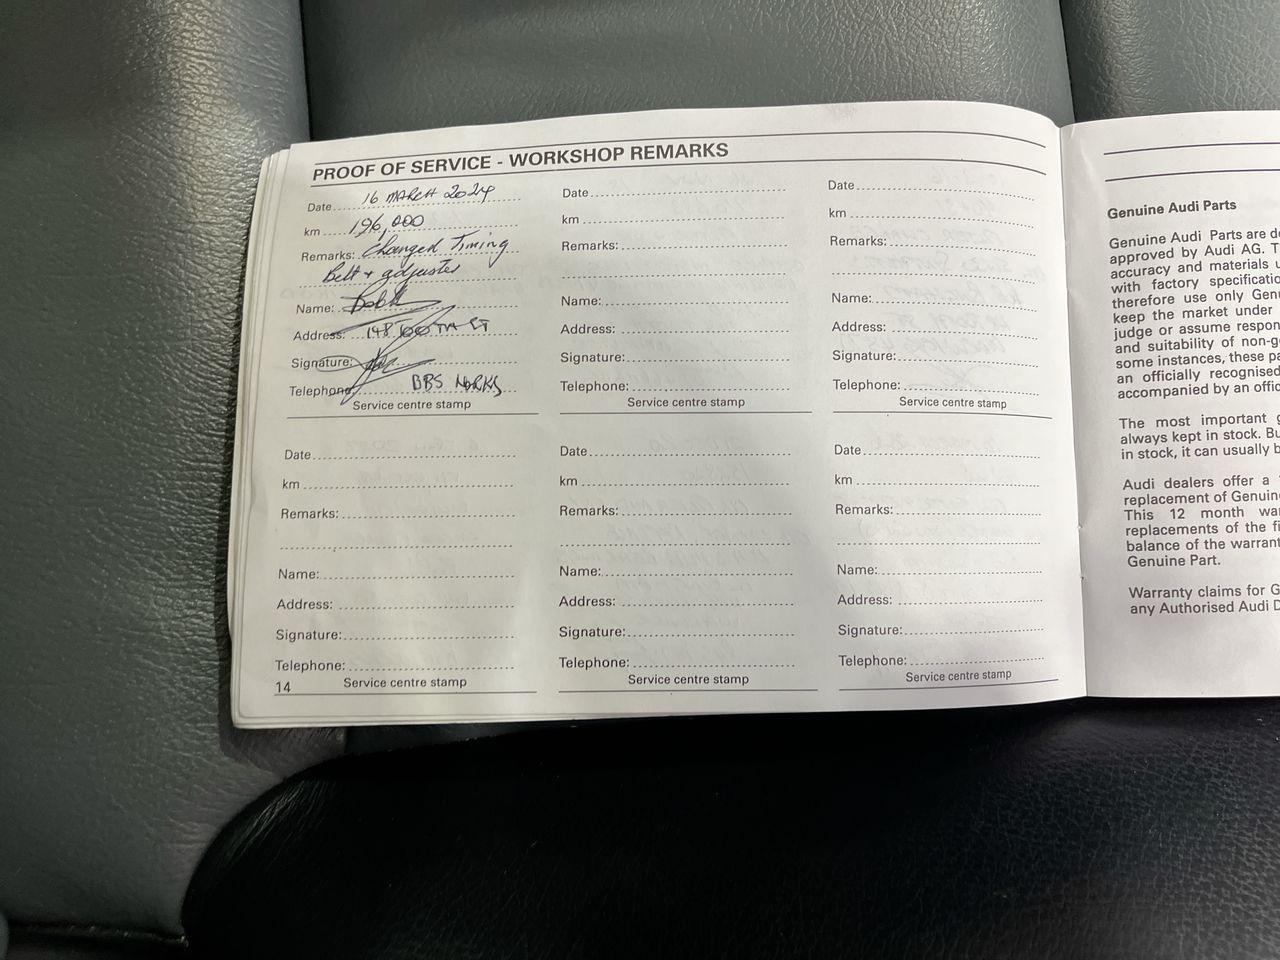 PROOF OF SERVICE - WORKSHOP REMARKS
Date 16 MARCH 2024
km 196,000
Remarks: Changed Timing
Belt + adjuster
Name:
Address: 148
Signature:
Telephone: BBS WORKS
Service centre stamp
Date
km
Remarks:
Name:
Address:
Signature:
Telephone:
Service centre stamp
Date
km
Remarks:
Name:
Address:
Signature:
Telephone:
Service centre stamp
Date
km
Remarks:
Name:
Address:
Signature:
Telephone:
Service centre stamp
Date
km
Remarks:
Name:
Address:
Signature:
Telephone:
Service centre stamp
Date
km
Remarks:
Name:
Address:
Signature:
Telephone:
Service centre stamp
14
Genuine Audi Parts
Genuine Audi Parts are
approved by Audi AG.
accuracy and materials
with factory
therefore use only
keep the market under
judge or assume
and suitability of
some instances, these
an officially recognised
accompanied by an
The most important
always kept in stock.
in stock, it can usually
Audi dealers offer a
replacement of
This 12 month
replacements of the
balance of the
Genuine Part.
Warranty claims for
any Authorised Audi